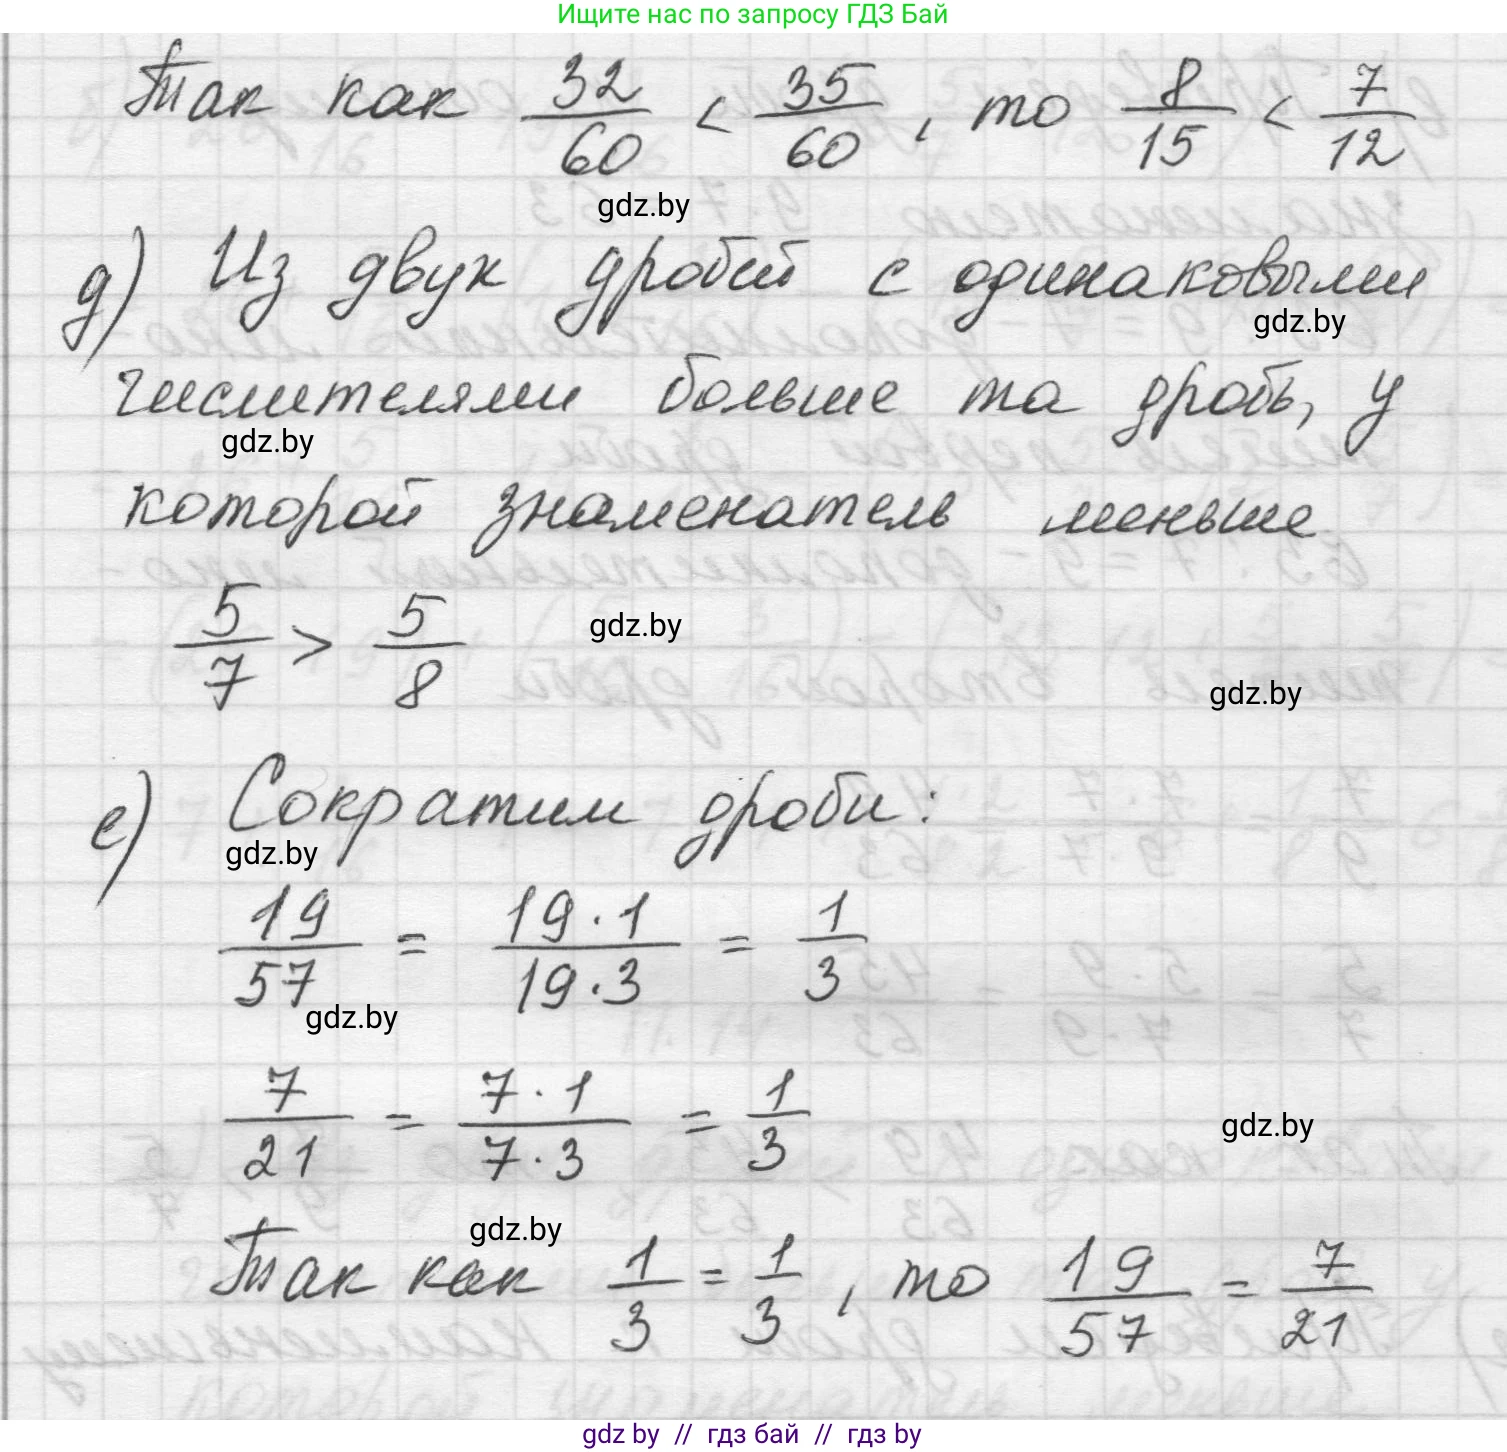 Ищите нас по запросу ГДЗ Бай
Так как 32/60 < 35/60, то 8/15 < 7/12
gdz.by
д) Из двух дробей с одинаковыми
gdz.by
числителями больше та дробь, у
gdz.by
которой знаменатель меньше
5/7 > 5/8
gdz.by
gdz.by
е) Сократим дроби:
gdz.by
19/57 = 19·1/19·3 = 1/3
gdz.by
7/21 = 7·1/7·3 = 1/3
gdz.by
gdz.by
Так как 1/3 = 1/3, то 19/57 = 7/21
gdz.by // гдз бай // гдз by